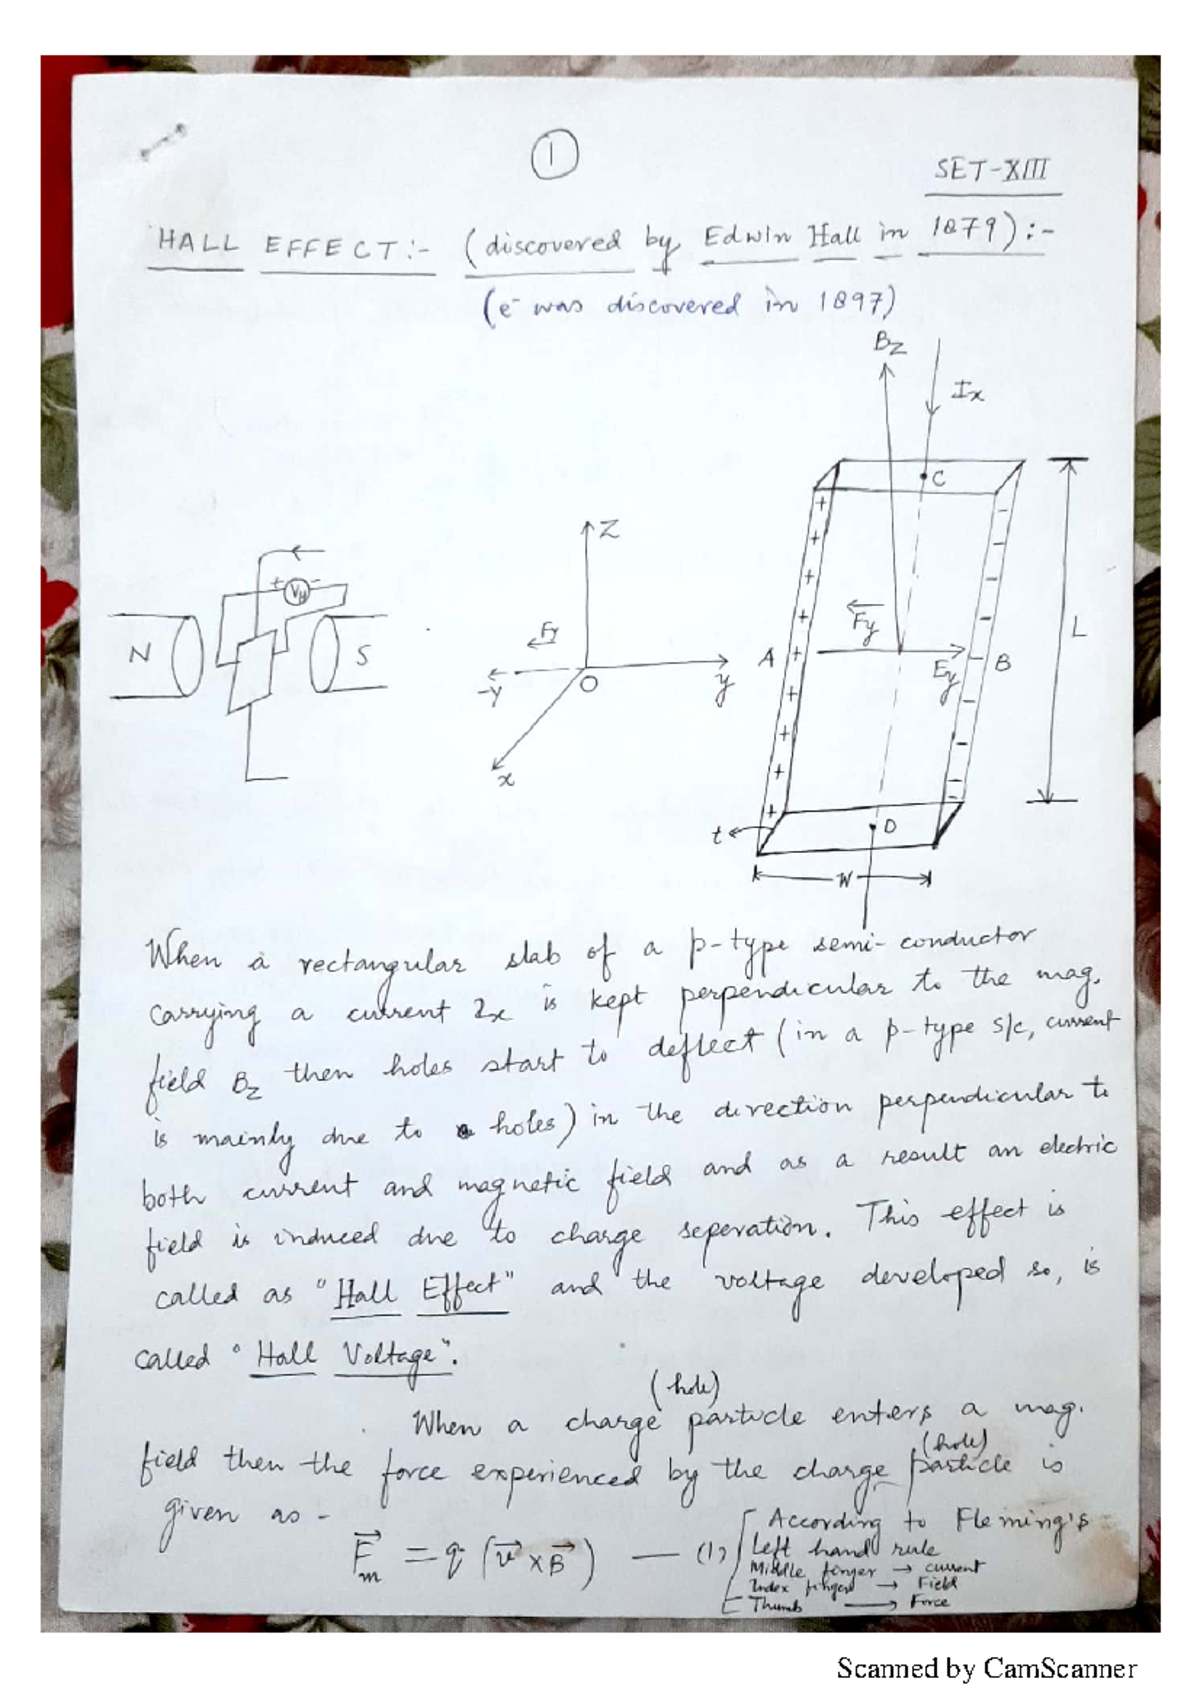 1
SET-XIII
HALL EFFECT:- (discovered by Edwin Hall in 1879):-
(e⁻ was discovered in 1897)
Bz
Ix
C
Z
+ VH -
N
S
Fy
-y
O
y
x
Fy
A
Ey
B
L
t
D
W
When a rectangular slab of a p-type semi-conductor
carrying a current Ix is kept perpendicular to the mag.
field Bz then holes start to deflect (in a p-type s/c, current
is mainly due to holes) in the direction perpendicular to
both current and magnetic field and as a result an electric
field is induced due to charge seperation. This effect is
called as "Hall Effect" and the voltage developed so, is
called "Hall Voltage".
(hole)
When a charge particle enters a mag.
(hole)
field then the force experienced by the charge particle is
given as -
F⃗m = q (v⃗ × B⃗) — (1)
According to Fleming's
Left hand rule
Middle finger → current
Index finger → Field
Thumb → Force
Scanned by CamScanner